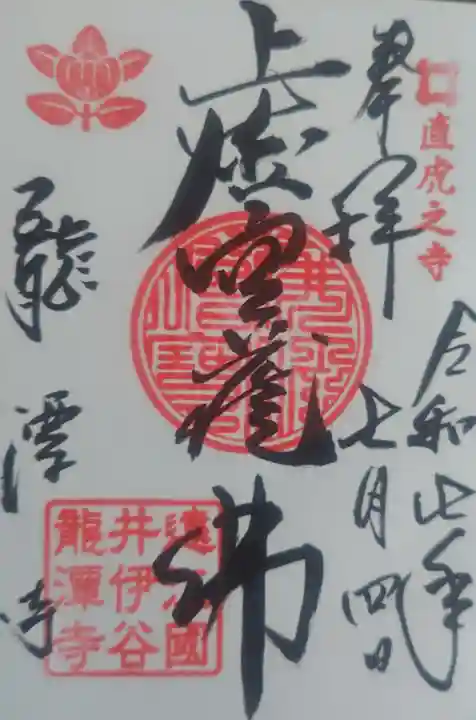 直虎之寺
奉拝
令和 年
七月四日
虚空蔵佛
龍潭寺
遠江國
井伊谷
龍潭寺